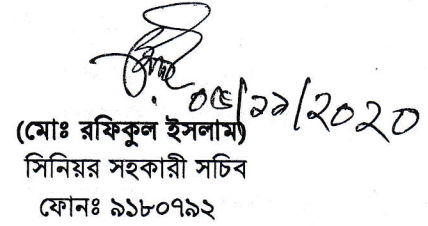 ০৫/১১/২০২০
(মোঃ রফিকুল ইসলাম)
সিনিয়র সহকারী সচিব
ফোনঃ ৯১৮০৭৯২